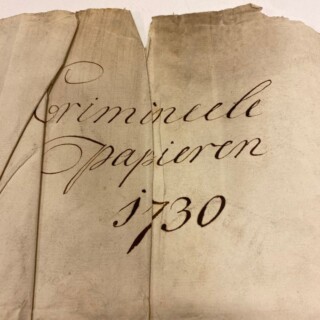 Crimineele
papieren
1730